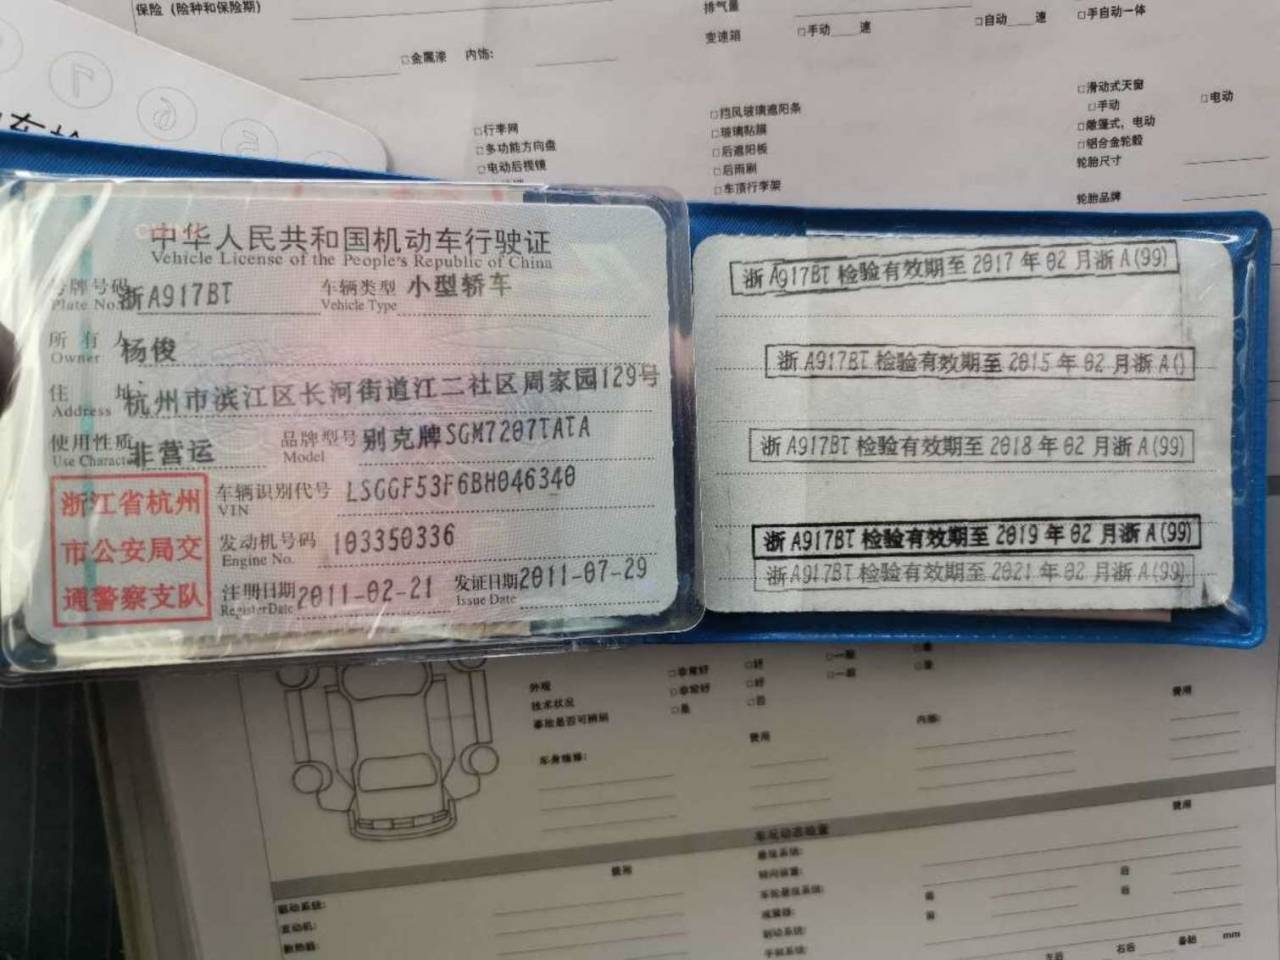 保险（险种和保险期）
排气量
变速箱 □手动____速 □自动____速 □手自动一体
□金属漆 内饰:
□行李网
□多功能方向盘
□电动后视镜
□挡风玻璃遮阳条
□玻璃贴膜
□后遮阳板
□后雨刷
□车顶行李架
□滑动式天窗
□手动 □电动
□敞篷式，电动
□铝合金轮毂
轮胎尺寸
轮胎品牌
7
6
5
中华人民共和国机动车行驶证
Vehicle License of the People's Republic of China
号牌号码 浙A917BT 车辆类型 小型轿车
Plate No. Vehicle Type
所有人 杨俊
Owner
住址 杭州市滨江区长河街道江二社区周家园129号
Address
使用性质 非营运 品牌型号 别克牌SGM7207TATA
Use Character Model
车辆识别代号 LSGGF53F6BH046340
VIN
发动机号码 103350336
Engine No.
注册日期 2011-02-21 发证日期 2011-07-29
Register Date Issue Date
浙江省杭州
市公安局交
通警察支队
浙A917BT 检验有效期至 2017 年 02 月浙A(99)
浙A917BT 检验有效期至 2015 年 02 月浙A()
浙A917BT 检验有效期至 2018 年 02 月浙A(99)
浙A917BT 检验有效期至 2019 年 02 月浙A(99)
浙A917BT 检验有效期至 2021 年 02 月浙A(99)
外观 □非常好 □好 □一般 □差
技术状况 □非常好 □好 □一般 □差
事故是否可辨别 □是 □否
费用
车身维修: 费用 内部:
车况动态检查
费用 费用
驱动系统:
发动机:
散热器:
悬挂系统:
转向装置:
车轮悬挂系统:
减震器:
制动系统:
前 后
前 后
左后 右后 备胎 mm